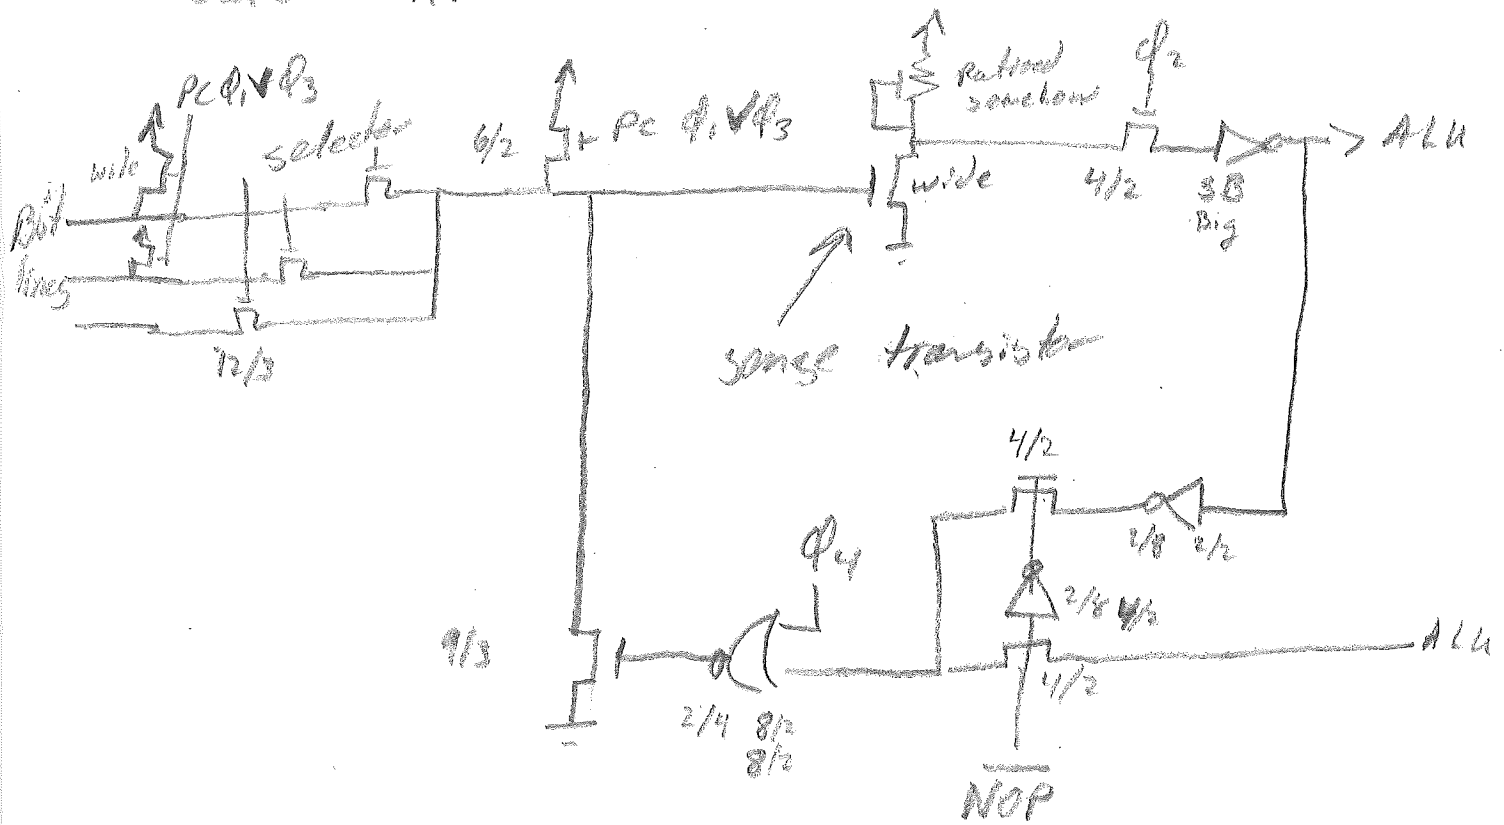 PC Φ₁ ∨ Φ₃
wide
selector
Bit
lines
12/3
6/2
PC Φ₁ ∨ Φ₃
Ratioed
somehow
Φ₂
wide
4/2
SB
Big
ALU
sense transistor
4/2
2/8 2/2
Φ4
2/8 4/2
9/3
2/4 8/2
8/2
4/2
ALU
NOP